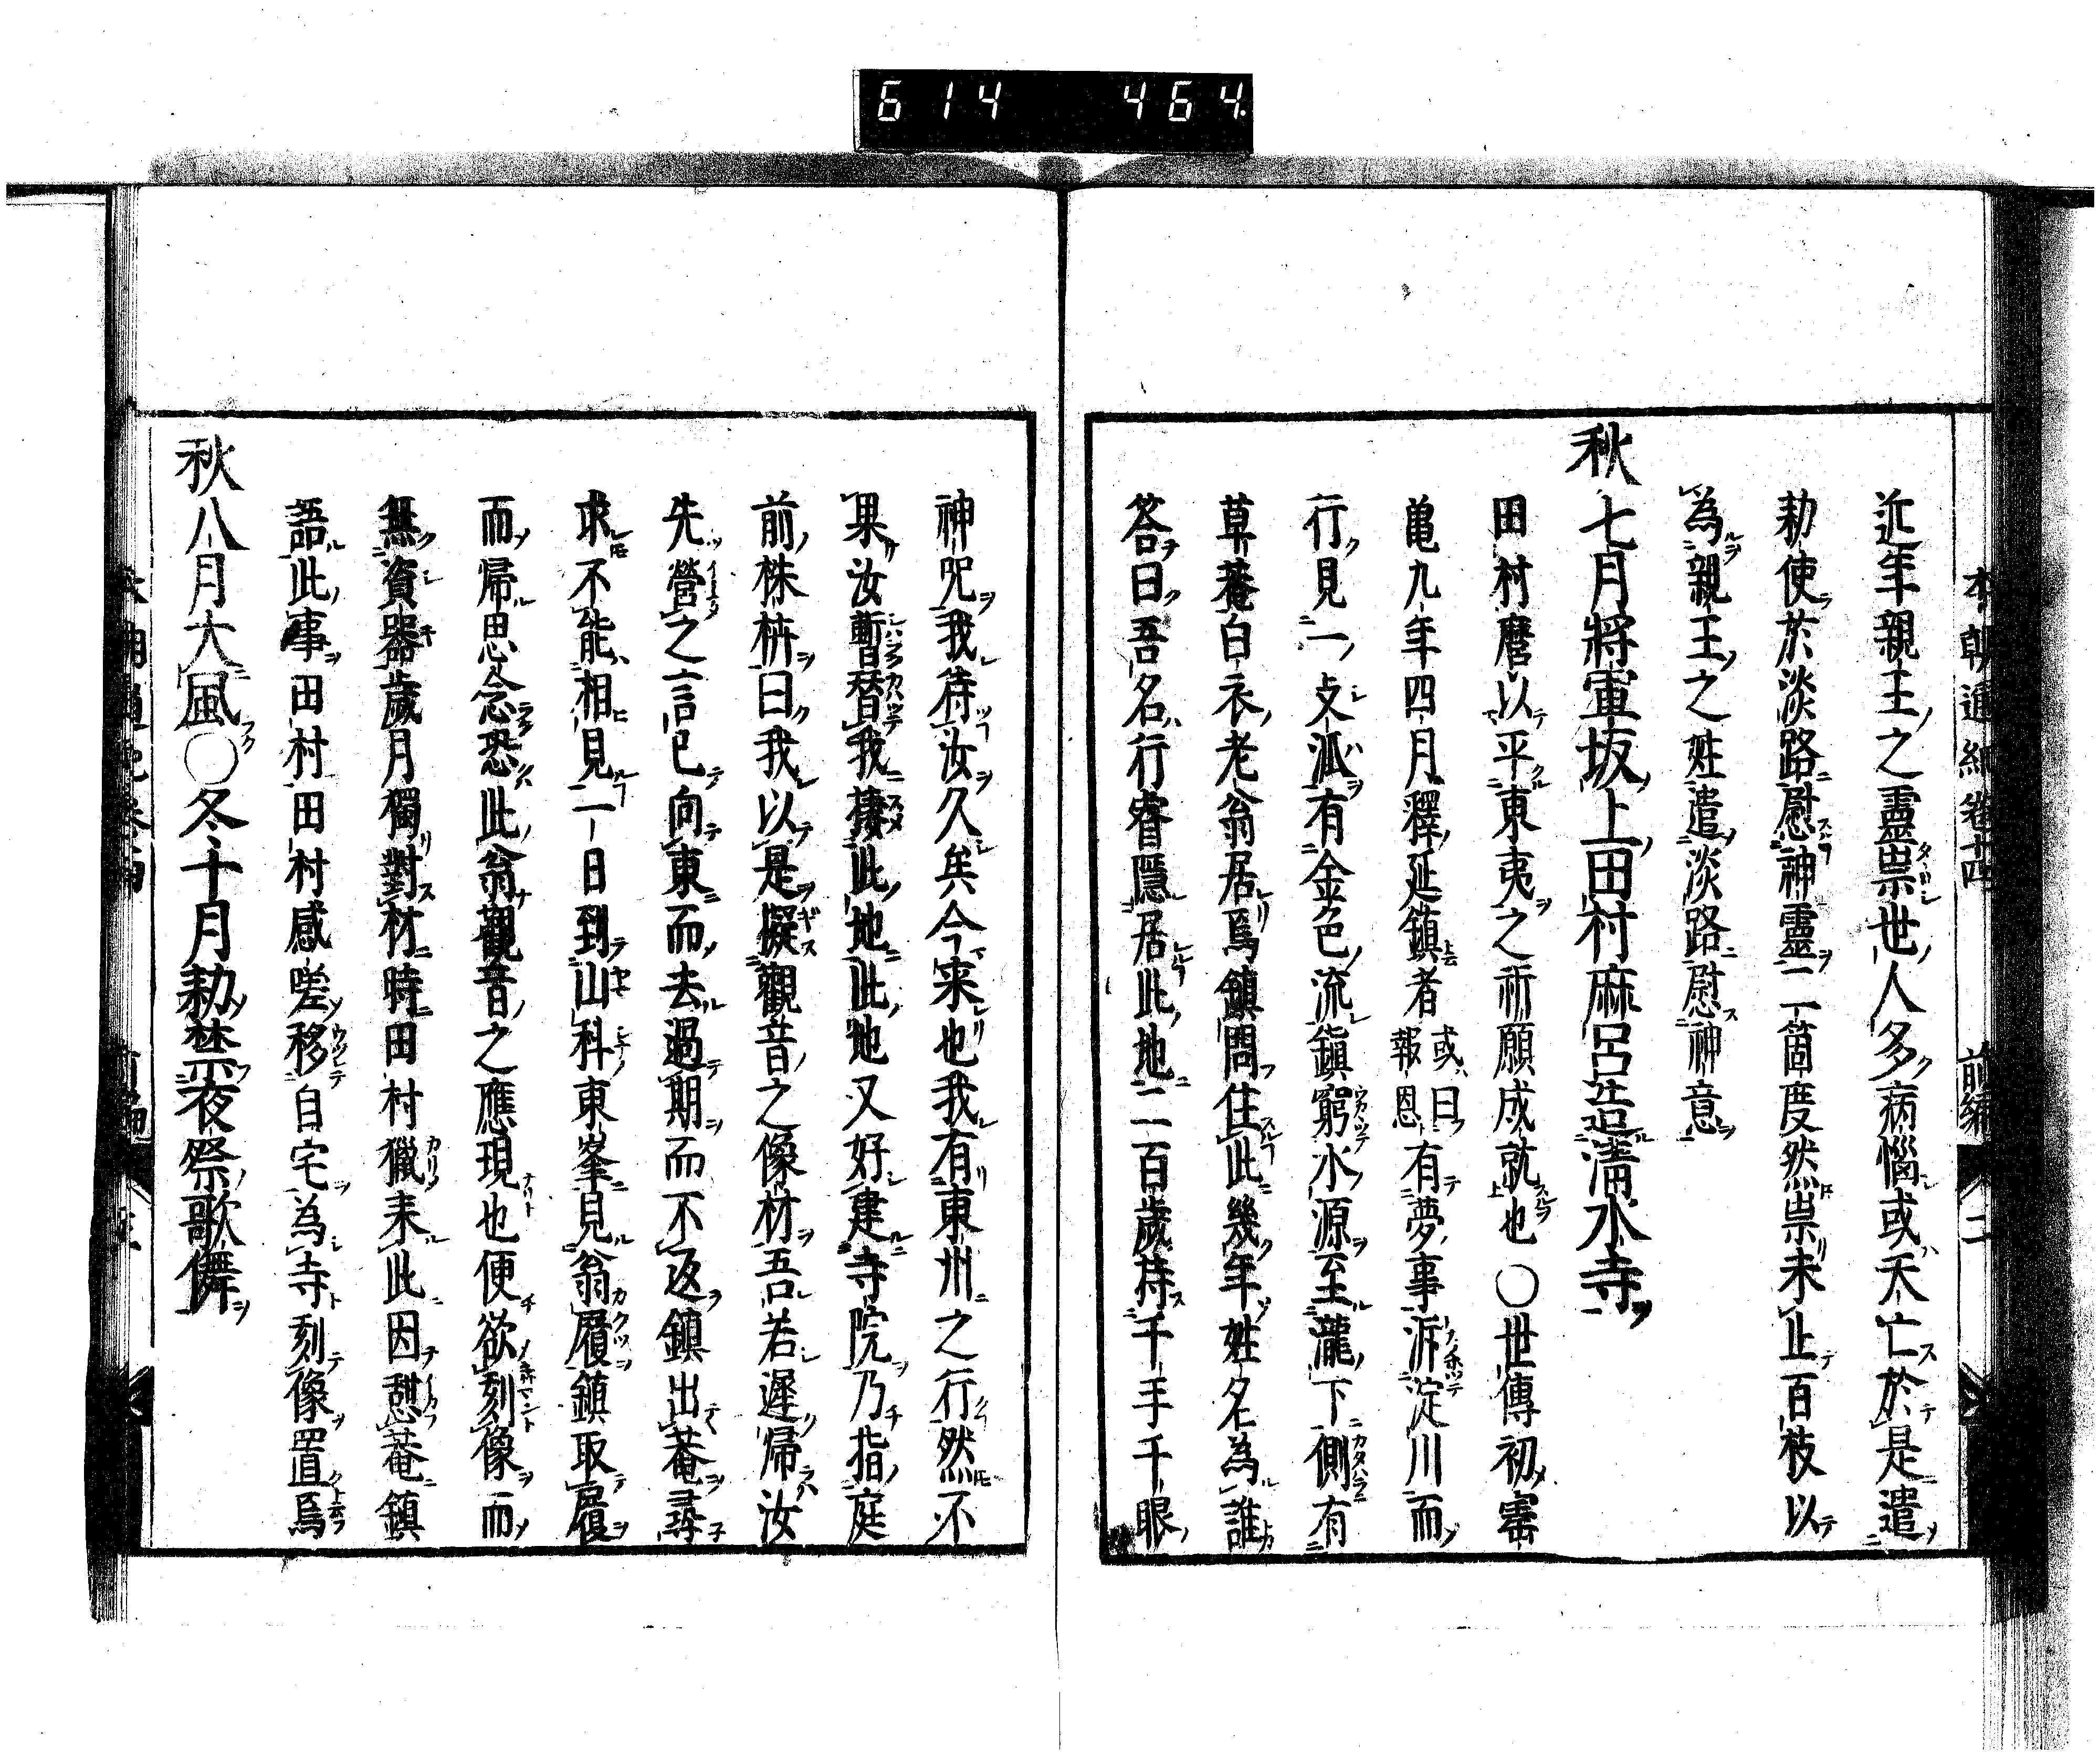 614 464
本朝通紀卷十四 前編 二
近年親王之靈祟世人多病惱或夭亡於是遣
勅使於淡路慰神靈二箇度然祟未止百枝以
為親王之姓遣淡路慰神意
秋七月將軍坂上田村麻呂造清水寺
田村麿以平東夷之祈願成就也〇世傳初寶
龜九年四月釋延鎮者或曰報恩有夢事泝淀川而
行見一支派有金色流鎮窮水源至瀧下側有
草菴白衣老翁居焉鎮問住此幾年姓名為誰
答曰吾名行睿隱居此地二百歲持千手千眼
神呪我待汝久矣今来也我有東州之行然不
果汝暫替我棲此地此地又好建寺院乃指庭
前株枿曰我以是擬觀音之像材吾若遲歸汝
先營之言已向東而去過期而不返鎮出菴尋
求不能相見一日到山科東峯見翁履鎮取履
而帰思念恐此翁觀音之應現也便欲刻像而
無資器歲月獨對材時田村獵来此因憇菴鎮
語此事田村田村感嗟移自宅為寺刻像置焉
秋八月大風〇冬十月勅禁夜祭歌儛